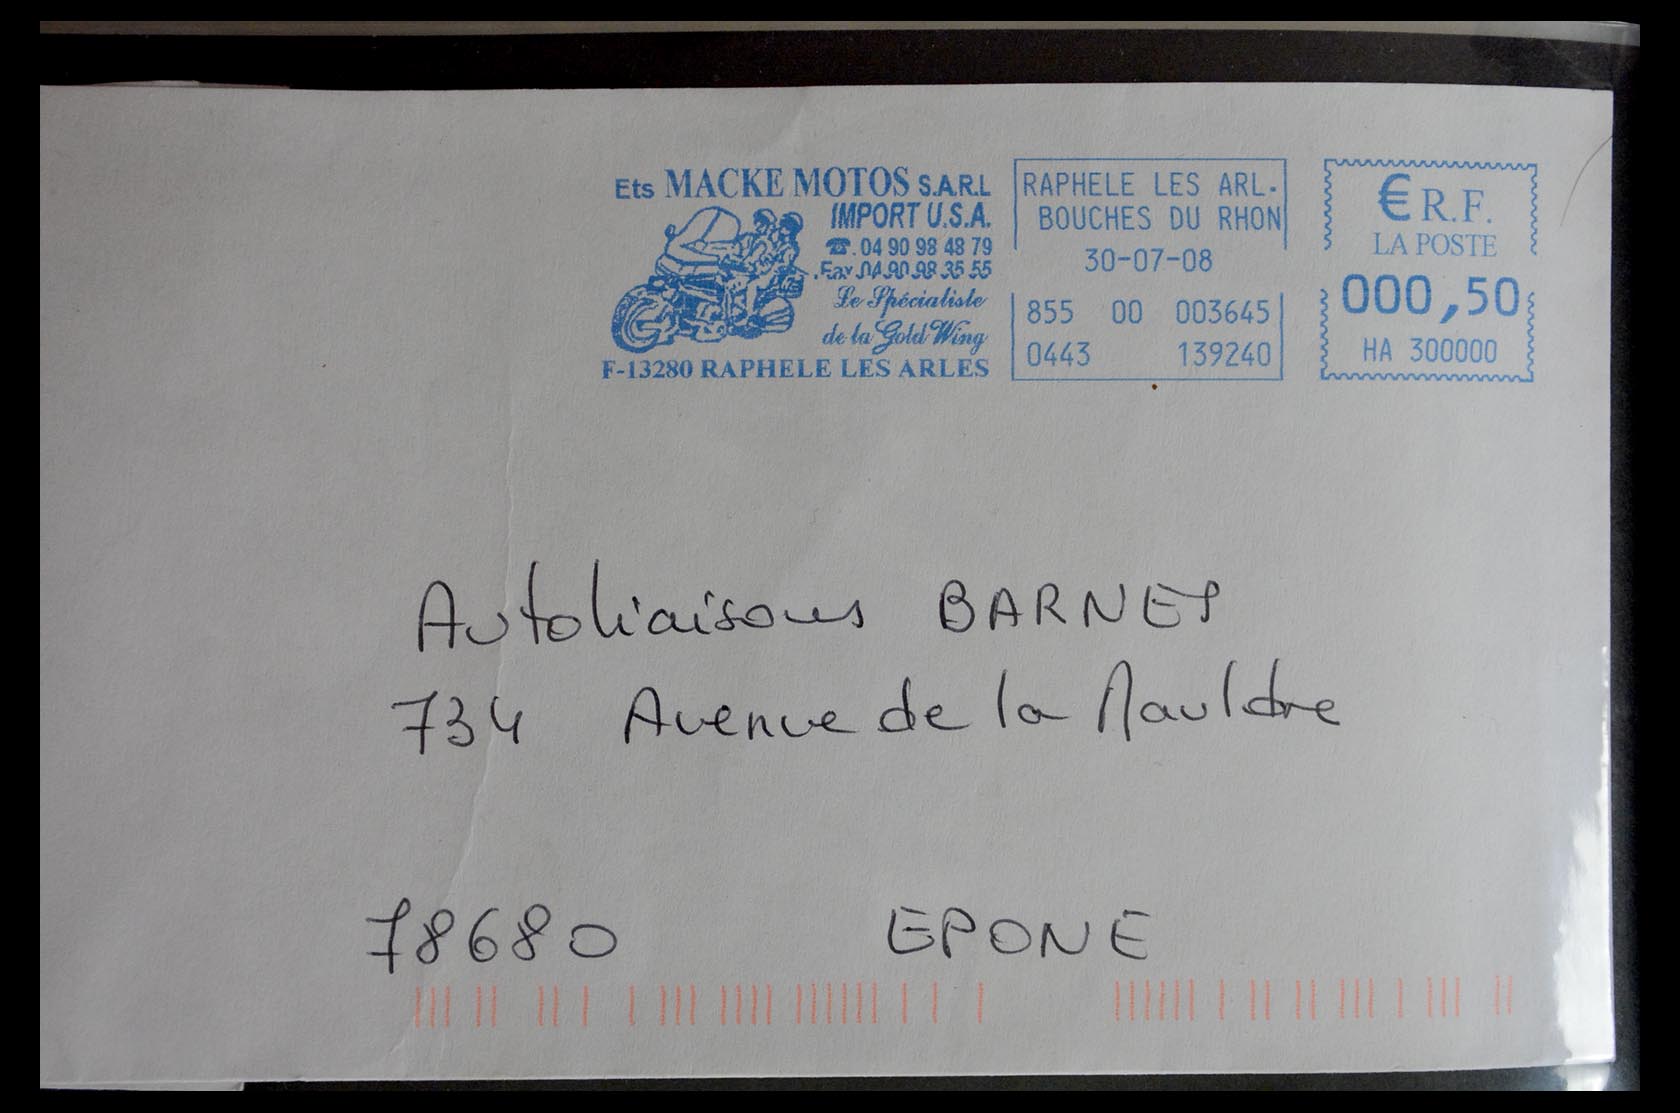 Ets MACKE MOTOS S.A.R.L
IMPORT U.S.A.
☎. 04 90 98 48 79
.Fax.04.90.98 35 55
Le Spécialiste
de la Gold Wing
F-13280 RAPHELE LES ARLES
RAPHELE LES ARL-
BOUCHES DU RHON
30-07-08
855 00 003645
0443 139240
€ R.F.
LA POSTE
000,50
HA 300000
Autoliaisons BARNES
734 Avenue de la Mauldre
78680 EPONE